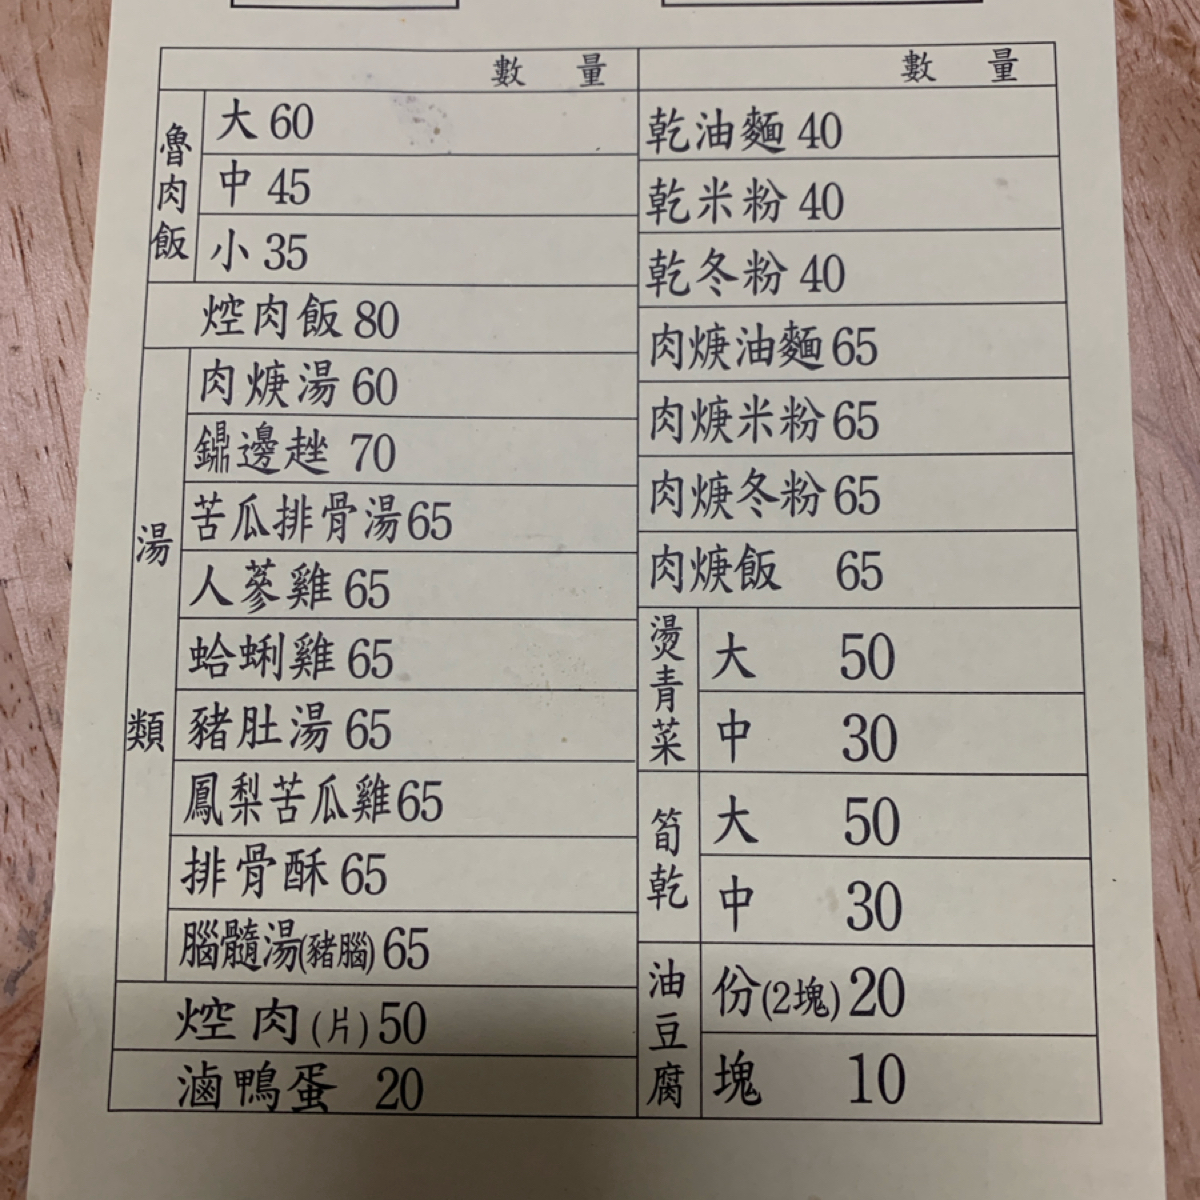 數 量
魯肉飯
大 60
中 45
小 35
焢肉飯 80
湯類
肉焿湯 60
鐤邊趖 70
苦瓜排骨湯 65
人蔘雞 65
蛤蜊雞 65
豬肚湯 65
鳳梨苦瓜雞 65
排骨酥 65
腦髓湯(豬腦) 65
焢肉(片) 50
滷鴨蛋 20
數 量
乾油麵 40
乾米粉 40
乾冬粉 40
肉焿油麵 65
肉焿米粉 65
肉焿冬粉 65
肉焿飯 65
燙青菜
大 50
中 30
筍乾
大 50
中 30
油豆腐
份(2塊) 20
塊 10